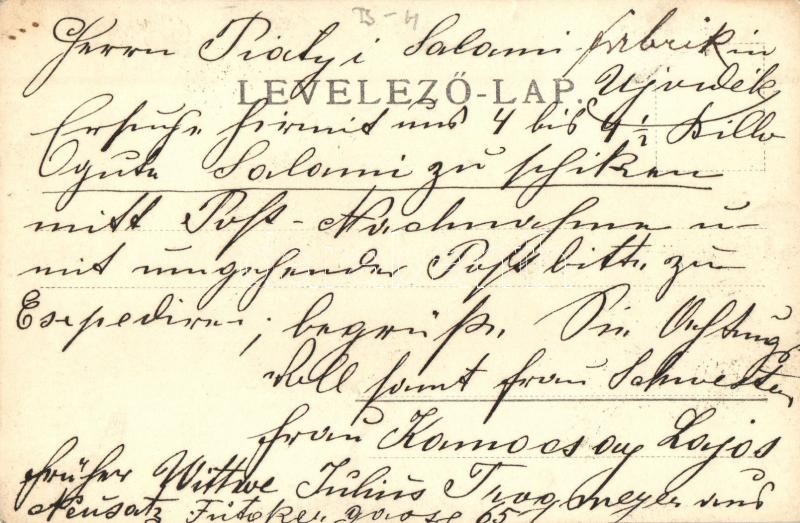 B-4
Herrn Piatyi Salami fabrik in
Ujvidék
LEVELEZŐ-LAP.
Ersuche hirmit uns 4 bis 4 ½ Killo
gute Salami zu schiken
mitt Post-Nachnahme u-
mit umgehender Post bitte zu
Expediren; begrüße Sie Achtungs
voll samt frau Schwester
frau Kamocsay Lajos
früher Wittwe Julius Tragmeyer aus
Neusatz Futoker gasse 65